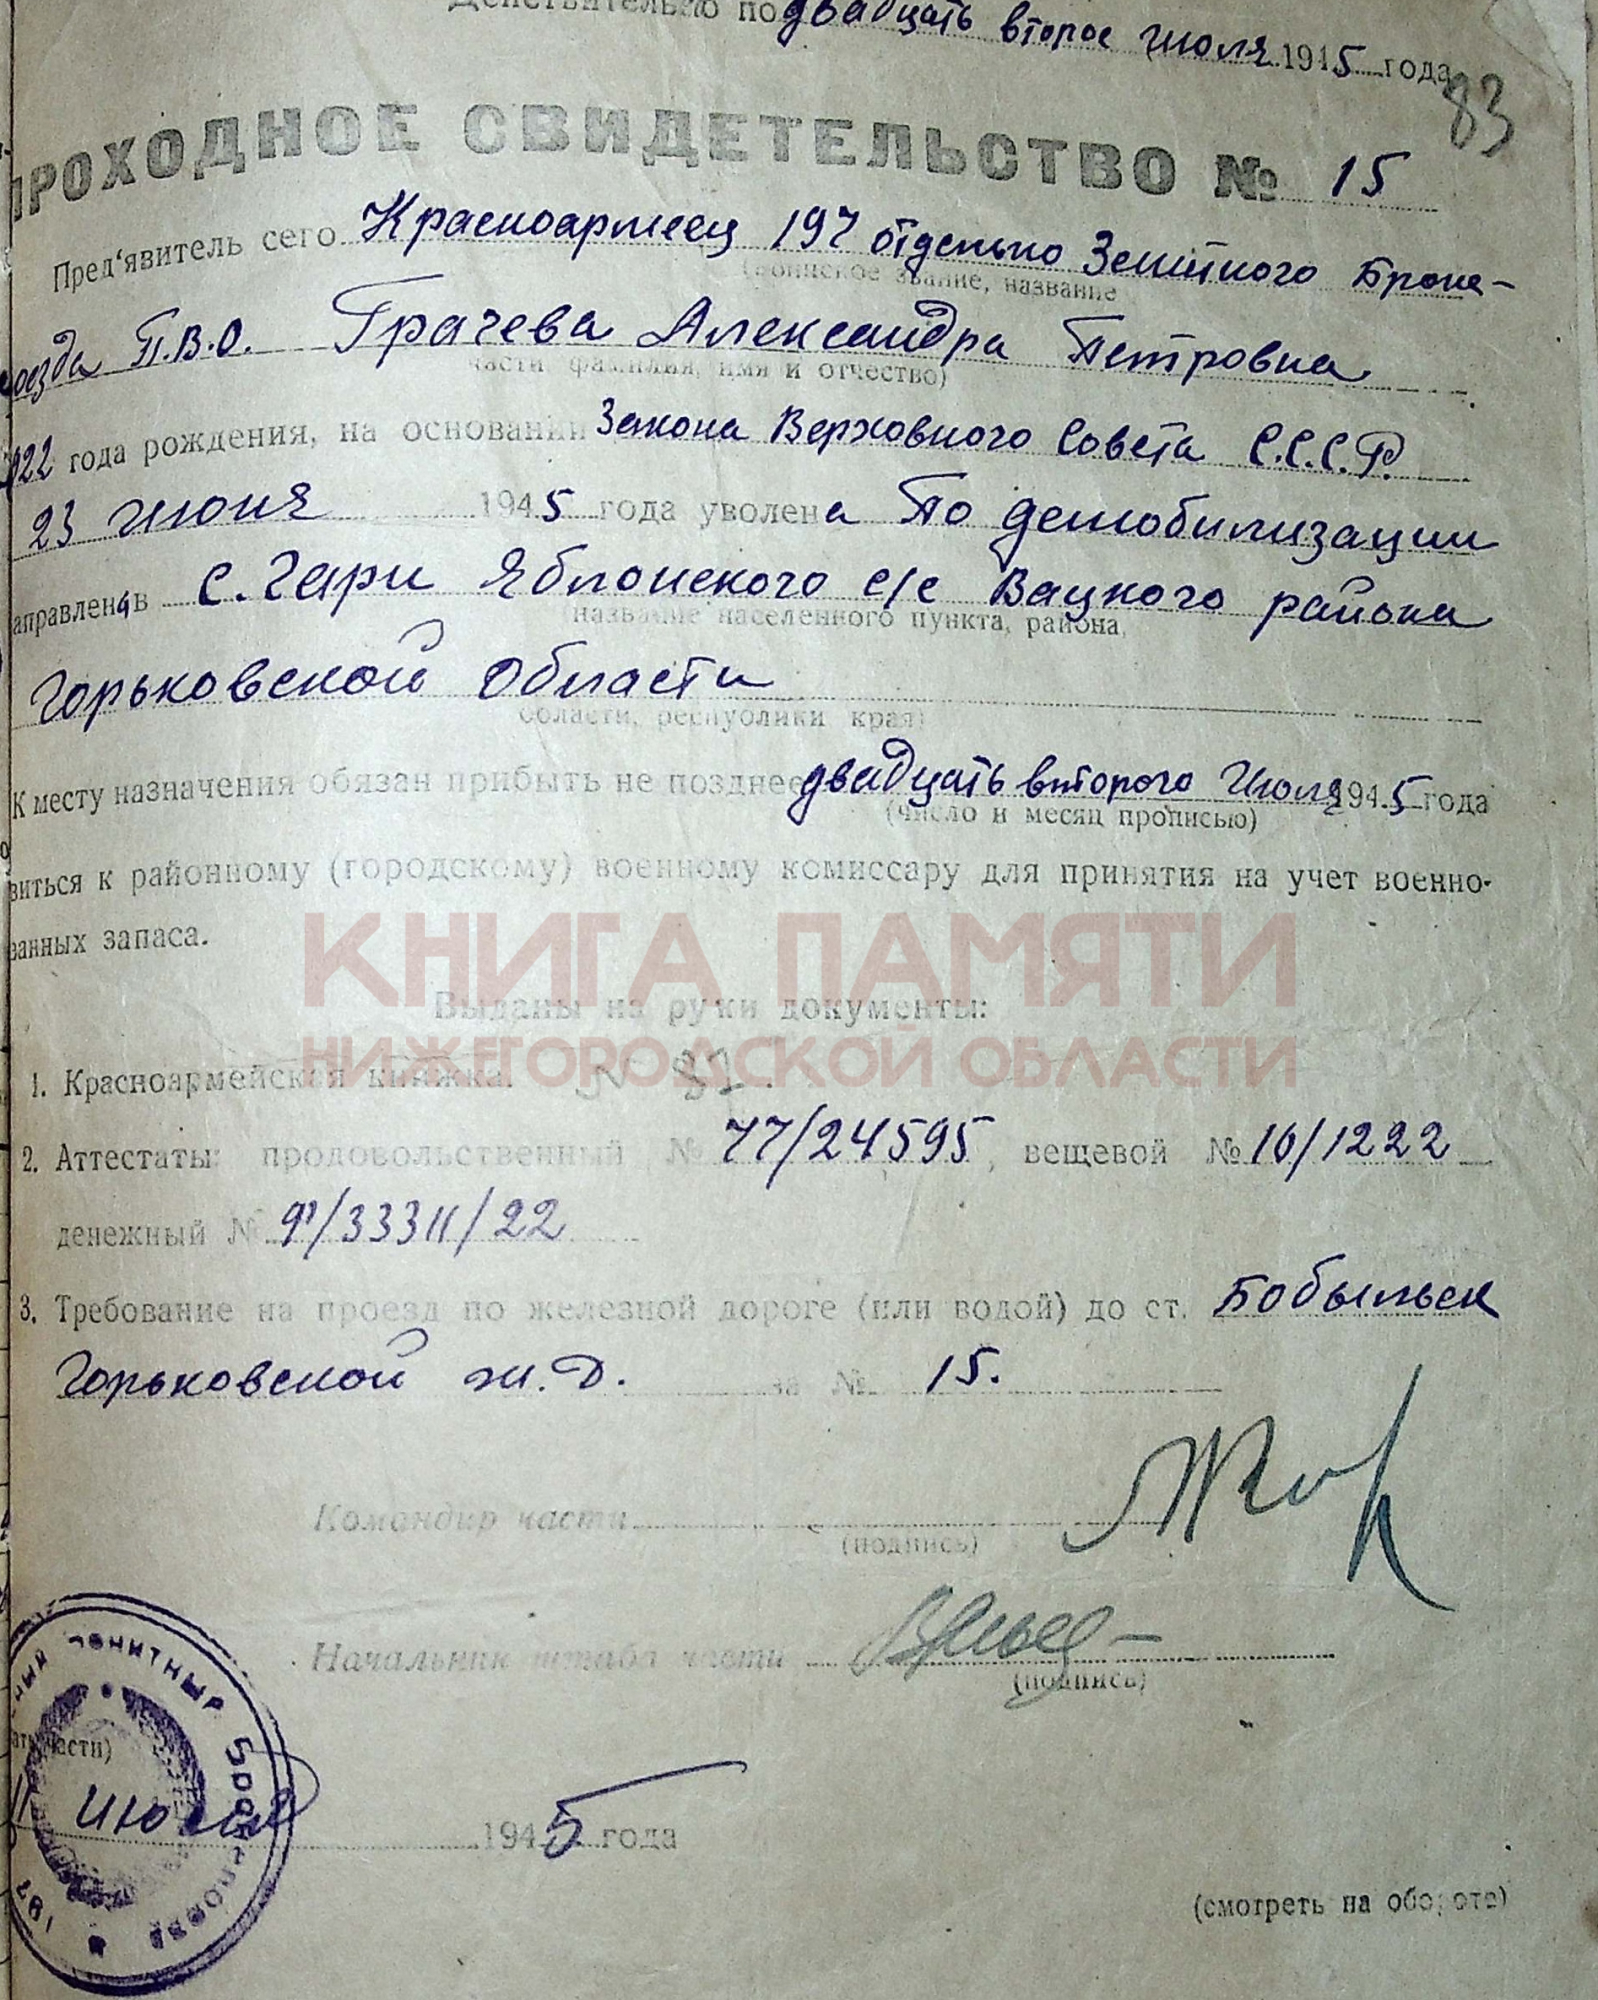 Действительно по двадцать второе июля 1945 года
83
ПРОХОДНОЕ СВИДЕТЕЛЬСТВО № 15
Пред'явитель сего Красноармеец 197 отдельно Зенитного Броне-
(воинское звание, название
поезда П.В.О. Грачева Александра Петровна
части фамилия, имя и отчество)
1922 года рождения, на основании Закона Верховного Совета С.С.С.Р.
23 июня 1945 года уволена По демобилизации
аправлена в с. Гари Яблонского с/с Вацкого района
(название населенного пункта, района,
Горьковской Области
области, республики края)
К месту назначения обязан прибыть не позднее двадцать второго Июля 1945 года
(число и месяц прописью)
виться к районному (городскому) военному комиссару для принятия на учет военно-
занных запаса.
КНИГА ПАМЯТИ
Выданы на руки документы:
НИЖЕГОРОДСКОЙ ОБЛАСТИ
1. Красноармейская книжка.
2. Аттестаты: продовольственный № 77/24595, вещевой № 10/1222
денежный № 97/33311/22
3. Требование на проезд по железной дороге (или водой) до ст. Бобыльск
Горьковской ж.Д. за № 15.
Командир части
(подпись)
Начальник штаба части
(подпись)
ный зенитный бронепоезд 197
части)
11 июля 1945 года
(смотреть на обороте)